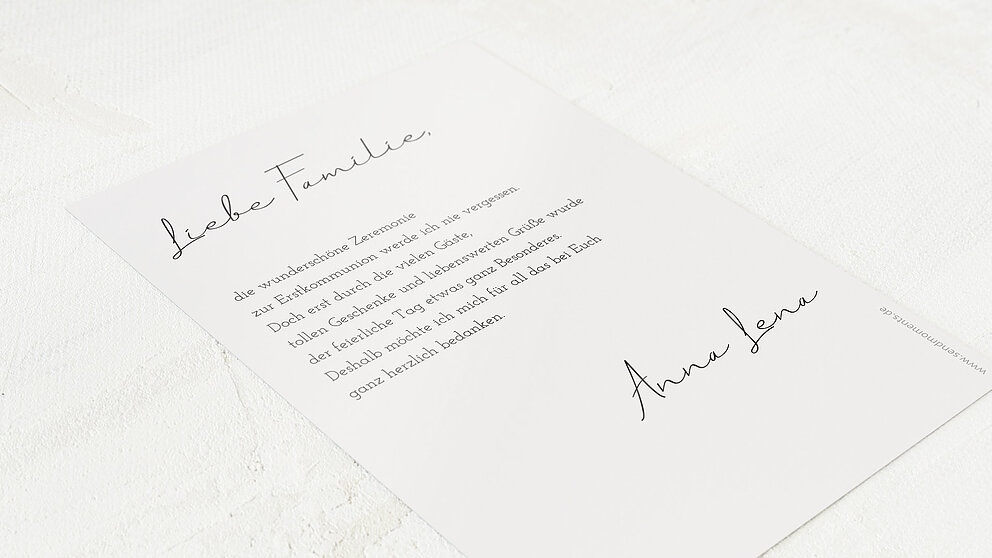 Liebe Familie,
die wunderschöne Zeremonie
zur Erstkommunion werde ich nie vergessen.
Doch erst durch die vielen Gäste,
tollen Geschenke und liebenswerten Grüße wurde
der feierliche Tag etwas ganz Besonderes.
Deshalb möchte ich mich für all das bei Euch
ganz herzlich bedanken.
Anna Lena
www.sendmoments.de